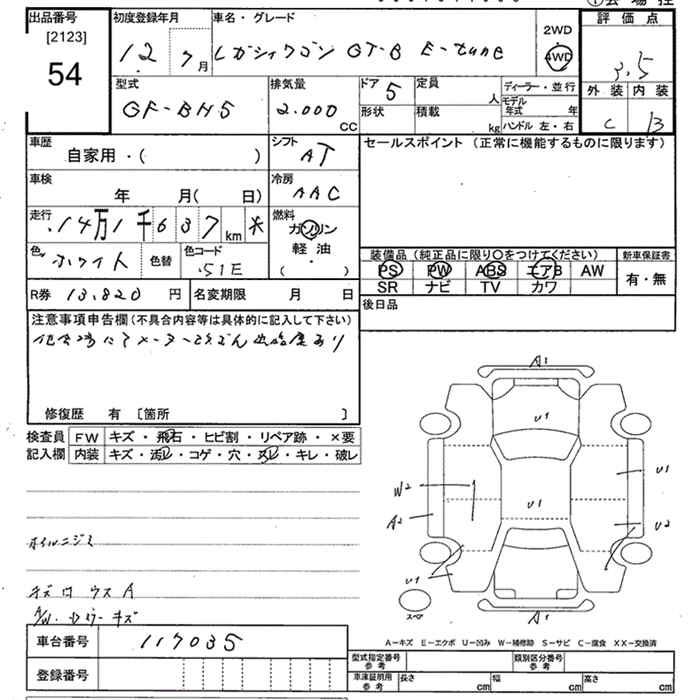 出品番号
[2123]
54
初度登録年月
12 7月
車名・グレード
レガシィワゴン GT-B E-tune
2WD
4WD
評価点
3.5
外装 内装
C B
型式
GF-BH5
排気量
2.000
CC
ドア 5
形状
定員
人
積載
kg
ディーラー・並行
モデル年式 年
ハンドル 左・右
車歴
自家用・( )
シフト
AT
セールスポイント (正常に機能するものに限ります)
車検
年 月( 日)
冷房
AAC
走行
14万1千637km
燃料
ガソリン
軽油
( )
色
ホワイト
色替
色コード
51E
R券 13,820 円
名変期限 月 日
装備品 (純正品に限り○をつけてください)
PS PW ABS エアB AW
SR ナビ TV カワ
新車保証書
有・無
後日品
注意事項申告欄 (不具合内容等は具体的に記入して下さい)
修復歴 有 [箇所 ]
検査員
記入欄
FW キズ・飛石・ヒビ割・リペア跡・×要
内装 キズ・汚レ・コゲ・穴・スレ・キレ・破レ
ホイルニジミ
キズ ウス A
A/W キズ
車台番号 117035
登録番号
A1
U1
U1
U1
W2
A2
U2
U1
スペア
A1
A-キズ E-エクボ U-凹み W-補修跡 S-サビ C-腐食 XX-交換済
型式指定番号
参考
類別区分番号
参考
車庫証明用
参考
長さ cm
幅 cm
高さ cm